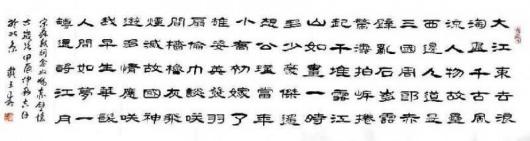 大江東去浪
淘盡千古風
流人物故壘
西邊人道是
三國周郎赤
壁亂石崩雲
驚濤裂岸捲
起千堆雪江
山如畫一時
多少豪傑遙
想公瑾當年
小喬初嫁了
雄姿英發羽
扇綸巾談笑
間檣櫓灰飛
煙滅故國神
遊多情應笑
我早生華髮
人間如夢一
樽還酹江月
宋蘇軾詞念奴嬌赤壁懷
古 甲辰
於北京